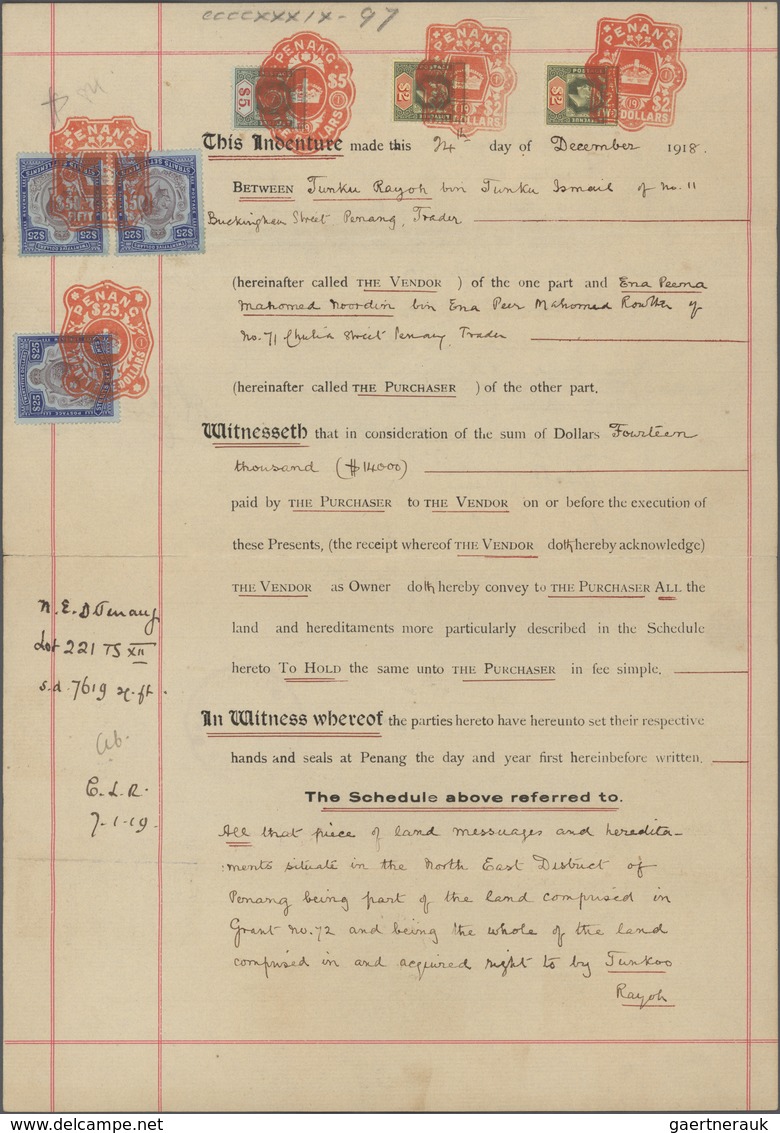 CCCCXXXIX - 97
PENANG
$5
FIVE DOLLARS
$5.
PENANG
$2
TWO DOLLARS
$2
PENANG
$2
TWO DOLLARS
$2
PENANG
FIFTY DOLLARS
STRAITS SETTLEMENTS
$25 TWENTYFIVE DOLLARS $25
PENANG
$25
TWENTY FIVE DOLLARS
$25 POSTAGE
This Indenture made this 24th day of December 1918.
BETWEEN Tunku Rayoh bin Tunku Ismail of no. 11
Buckingham Street Penang, Trader
(hereinafter called THE VENDOR ) of the one part and Ena Peena
Mahomed Noordin bin Ena Peer Mahomed Rowther of
No. 71 Chulia Street Penang, Trader
(hereinafter called THE PURCHASER ) of the other part.
Witnesseth that in consideration of the sum of Dollars Fourteen
thousand ($14000)
paid by THE PURCHASER to THE VENDOR on or before the execution of
these Presents, (the receipt whereof THE VENDOR doth hereby acknowledge)
THE VENDOR as Owner doth hereby convey to THE PURCHASER ALL the
land and hereditaments more particularly described in the Schedule
hereto TO HOLD the same unto THE PURCHASER in fee simple.
In Witness whereof the parties hereto have hereunto set their respective
hands and seals at Penang the day and year first hereinbefore written.
The Schedule above referred to.
All that piece of land messuages and heredita-
:ments situate in the North East District of
Penang being part of the land comprised in
Grant no. 72 and being the whole of the land
comprised in and acquired right to by Tunkoo
Rayoh
N. E. D Penang
Lot 221 TS XII
s.d. 7619 sq. ft.
C. L. R.
7-1-19
gaertnerauk